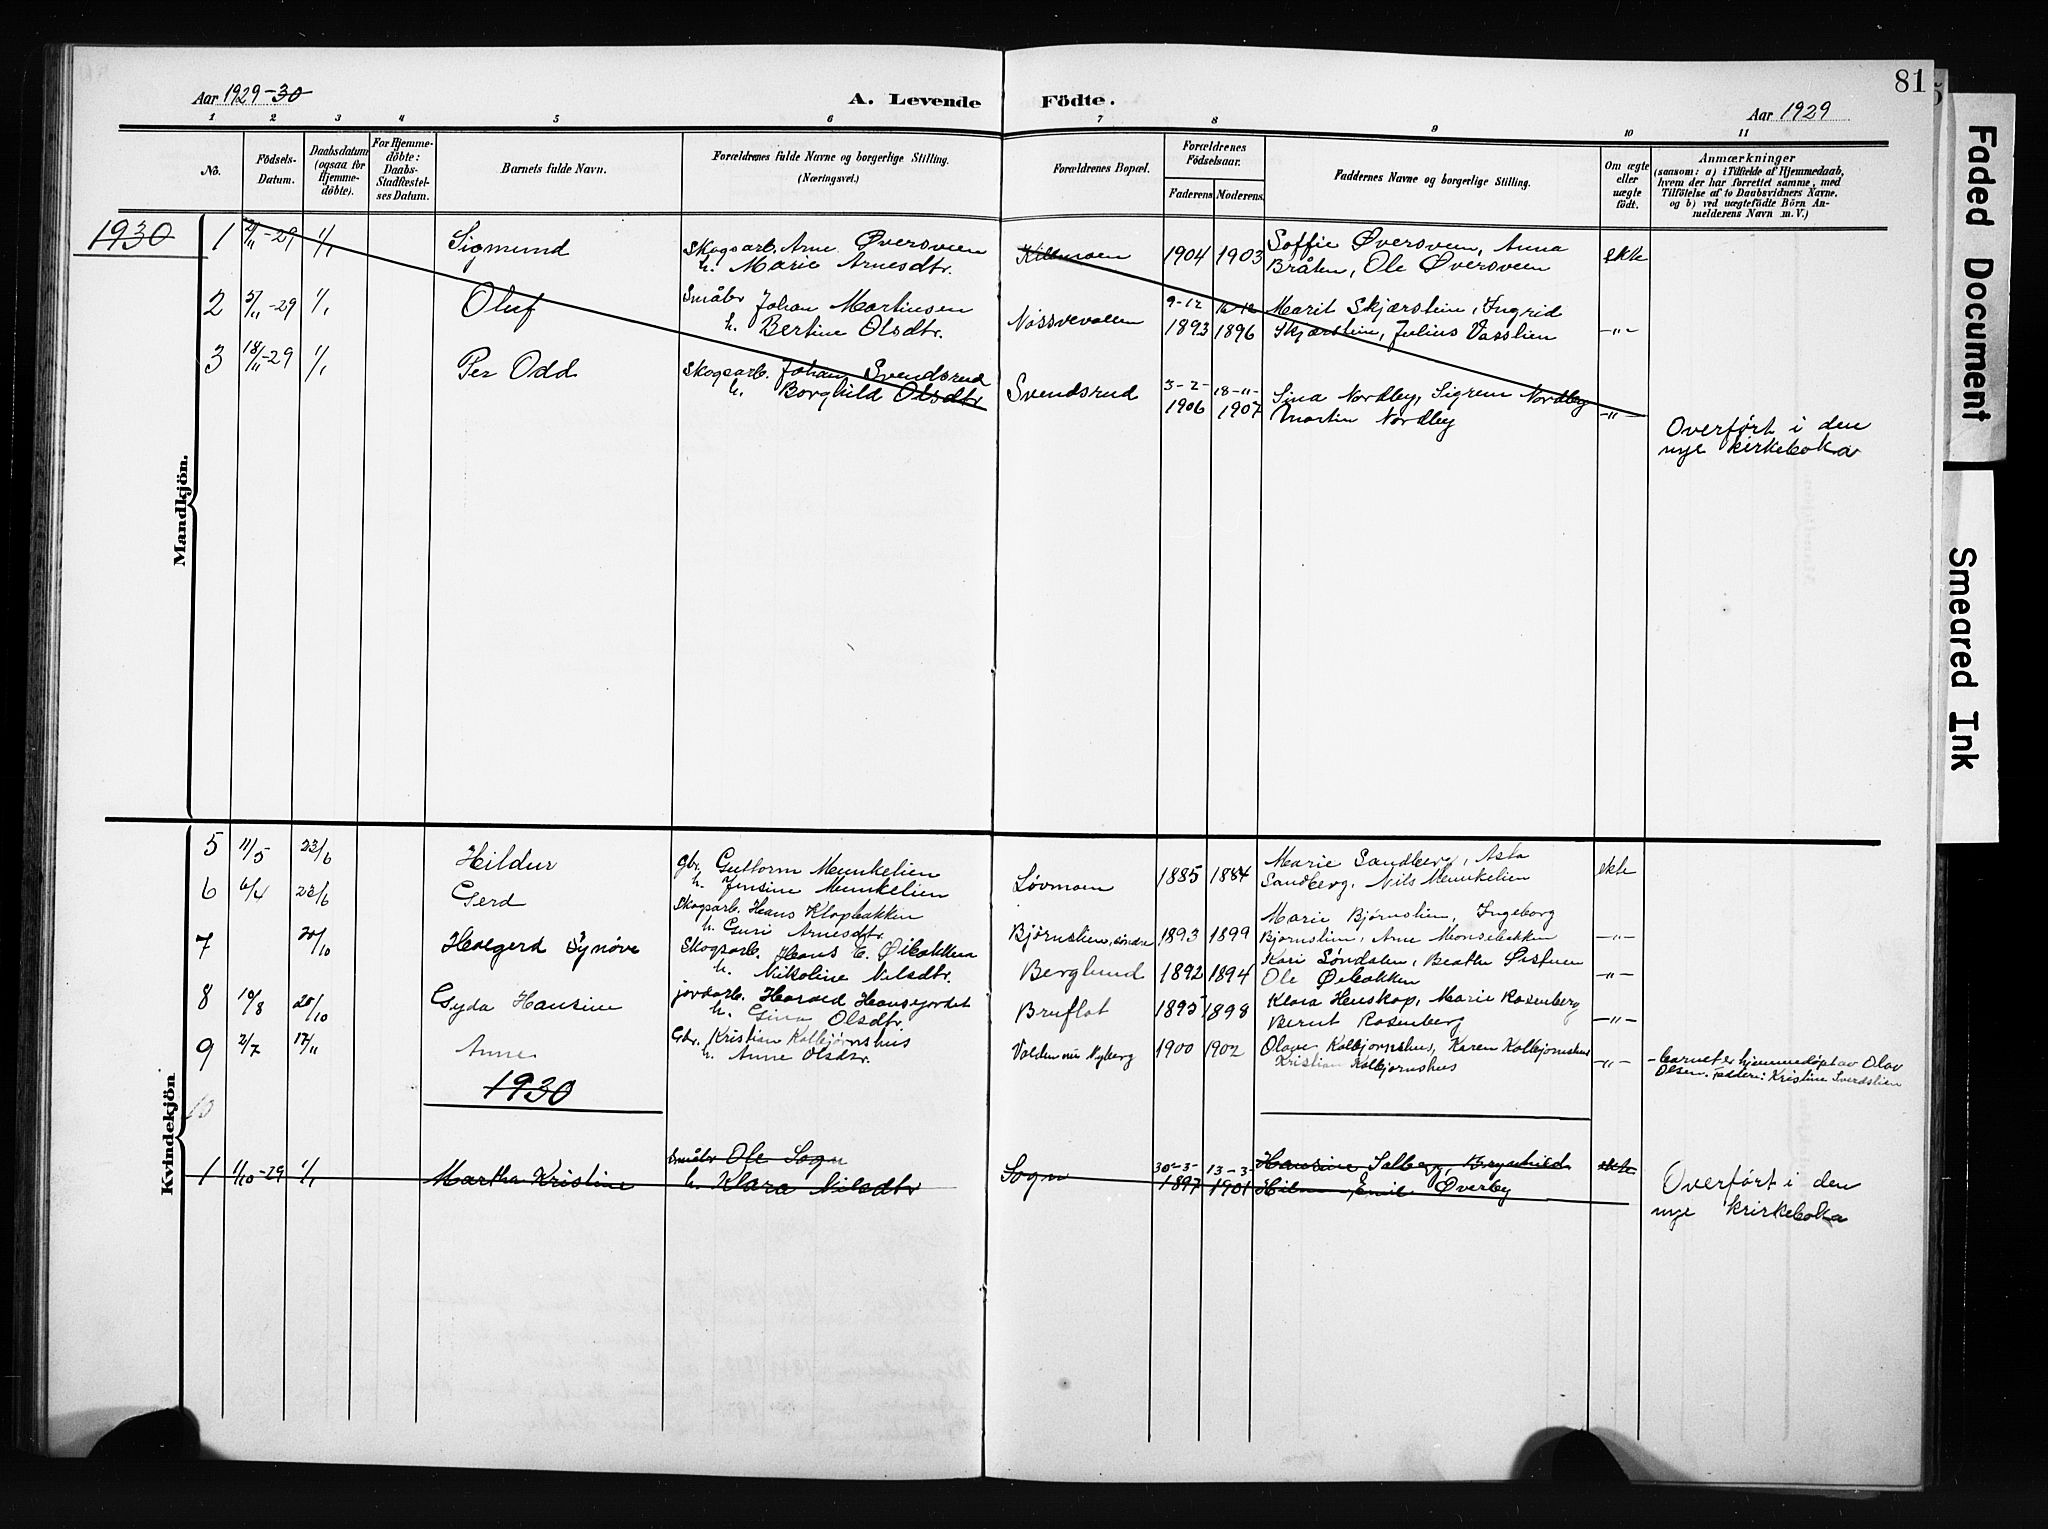 81
Aar 1929-30
A. Levende Födte.
Aar 1929
1 2 3 4 5 6 7 8 9 10 11
No.
Födsels-Datum.
Daabsdatum (ogsaa for Hjemmedöbte).
For Hjemmedöbte: Daabs-Stadfæstelses Datum.
Barnets fulde Navn.
Forældrenes fulde Navne og borgerlige Stilling. (Næringsvei.)
Forældrenes Bopæl.
Forældrenes Födselsaar.
Faderens Moderens
Faddernes Navne og borgerlige Stilling.
Om ægte eller uægte födt.
Anmærkninger
(saasom: a) i Tilfælde af Hjemmedaab,
hvem der har forrettet samme, med
Tilföielse af to Daabsvidners Navne.
og b) ved uægtefödte Börn An-
melderens Navn m. V.)
Mandkjön.
1930
1 2/11-29 1/1 Sigmund Skogsarb. Arne Øversveen 1904 1903 Soffie Øversveen, Anna ekte
h. Marie Arnesdtr. Bråten, Ole Øversveen
2 5/11-29 1/1 Oluf Småbr Johan Martinsen 9-12 Marit Skjærstein, Ingrid
h. Bertine Olsdtr. 1893 1896 Skjærstein, Julius Vasslien -"-
3 18/11-29 1/1 Per Odd Skogsarb. Johan Svendsrud Svendsrud 3-2- 18-11- Sina Nordby, Sigrun Nordby
h. Borghild Olsdtr 1906 1907 Martin Nordby -"-
Overført i den
nye kirkeboka
Kvindekjön
5 11/5 23/6 Hildur gbr. Guttorm Munkelien 1885 1884 Marie Sandberg, Asta ekte
h. Jensine Munkelien Løvmoen Sandberg, Nils Munkelien
6 6/4 23/6 Gerd Skogsarb. Hans Klopbakken Marie Bjørnslien, Ingeborg
h. Guri Arnesdtr. Bjørnslien, søndre 1893 1899 Bjørnslien, Arne Monsebakken -"-
7 20/10 Hallgerd Synøve Skogsarb. Hans E. Øibakken Kari Søndalen, Beathe
h. Nikoline Nilsdtr. Berglund 1892 1894 Ole Øibakken -"-
8 19/8 20/10 Gyda Hansine jordarb. Harald Hansejordet Bruflot 1895 1898 Klara Henskop, Marie Rosenberg
h. Gina Olsdtr. Bernt Rosenberg -"-
9 2/7 17/11 Anne Gbr. Kristian Kolbjørnshus 1900 1902 Olave Kolbjørnshus, Karen Kolbjørnshus
h. Anne Olsdtr. Nyberg Kristian Kolbjørnshus -"-
- barnet er hjemmedøpt av Olav
Olsen. Faddere: Kristine Sverdslien
10
1930
1 1/10-29 1/1 Martha Kristine Småbr Ole Sogn Sogn 30-3- 13-3- Hansine Solberg, Brynhild ekte
h. Klara Nilsdtr 1897 1901 Emil Øverby
Overført i den
nye krirkeboka
Faded Document
Smeared Ink